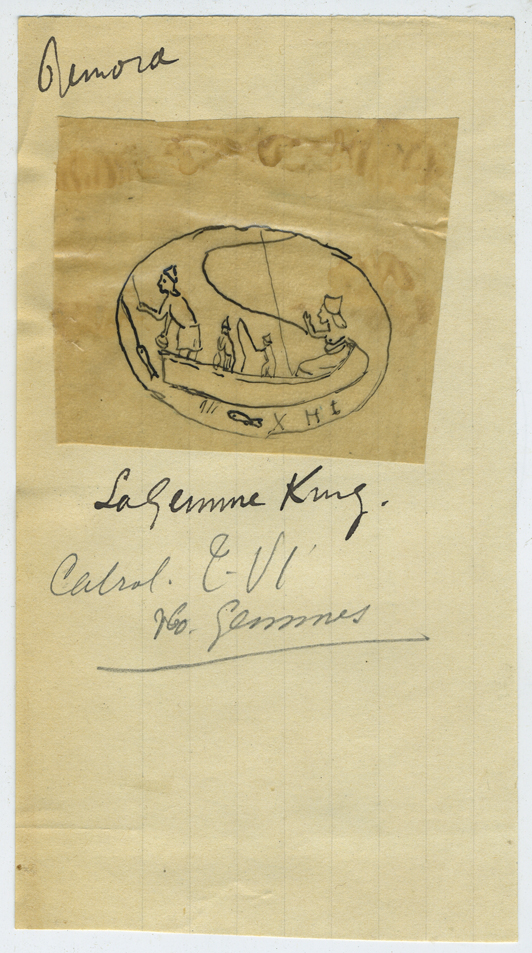 Remora
X H t
La Gemme King.
Cabrol. T-VI
Vo. Gemmes